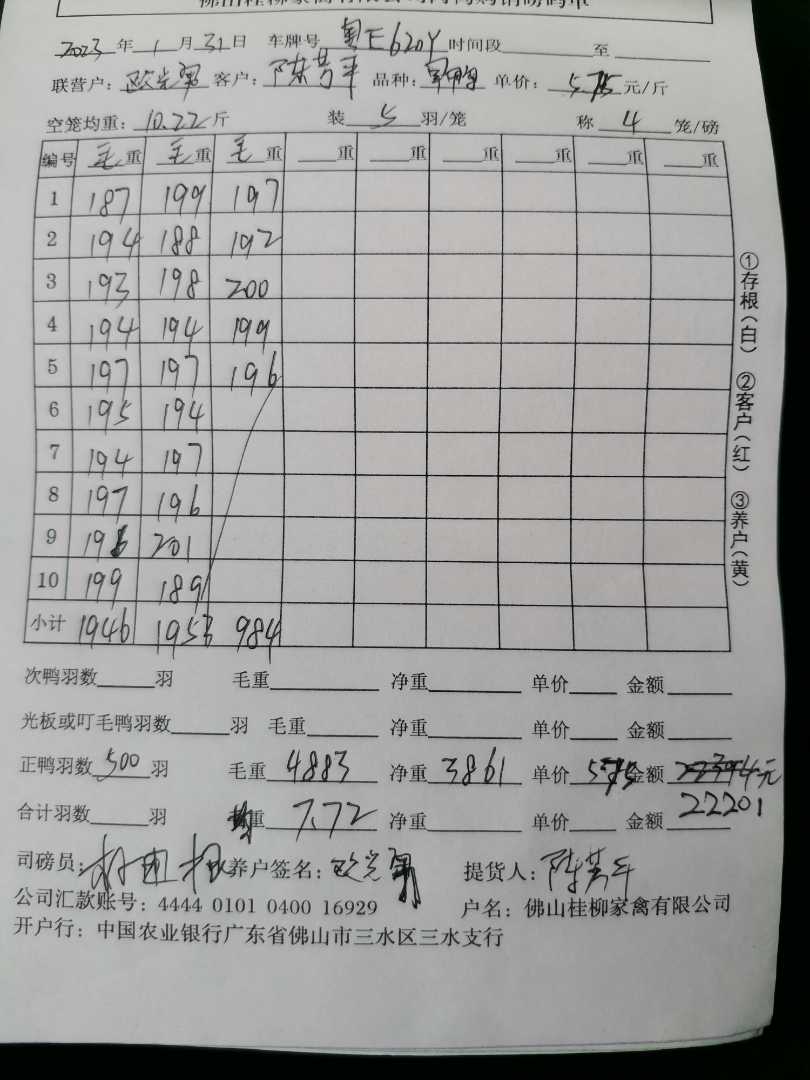 2023年1月31日 车牌号 粤E620Y 时间段 至
联营户: 欧 客户: 陈芳平 品种: 单价: 5.75元/斤
空笼均重: 10.22斤 装 5 羽/笼 称 4 笼/磅
编号 毛重 毛重 毛重 重 重 重 重 重 重
1 187 199 197
2 194 188 192
3 193 198 200
4 194 194 199
5 197 197 196
6 195 194
7 194 197
8 197 196
9 196 201
10 199 189
小计 1946 1953 984
①存根(白) ②客户(红) ③养户(黄)
次鸭羽数 羽 毛重 净重 单价 金额
光板或叮毛鸭羽数 羽 毛重 净重 单价 金额
正鸭羽数 500 羽 毛重 4883 净重 3861 单价 5.75 金额 元
合计羽数 羽 均重 7.72 净重 单价 金额 22201
司磅员: 养户签名: 欧 提货人: 陈芳平
公司汇款账号: 4444 0101 0400 16929 户名: 佛山桂柳家禽有限公司
开户行: 中国农业银行广东省佛山市三水区三水支行